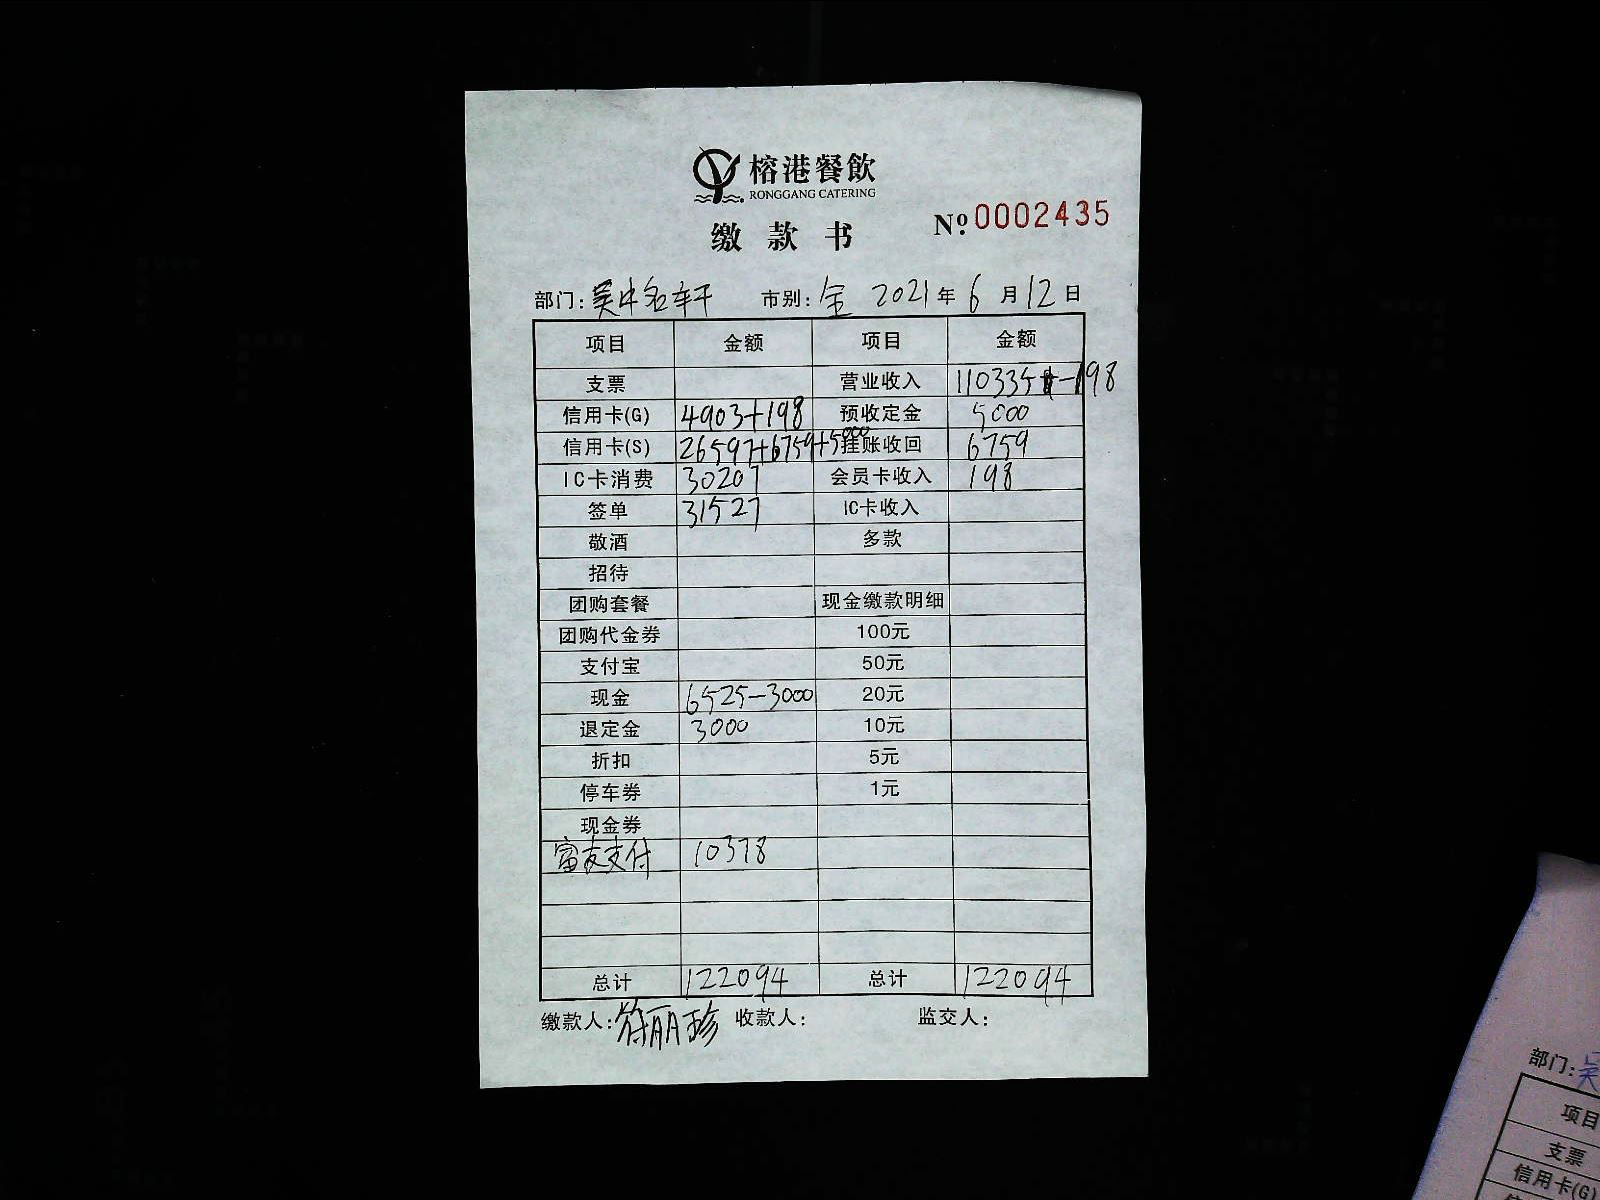 榕港餐飲
RONGGANG CATERING
缴款书
№ 0002435
部门: 吴中名轩 市别: 全 2021年6月12日
项目 金额 项目 金额
支票 营业收入 110335-198
信用卡(G) 4903+198 预收定金 5000
信用卡(S) 26597+6759+5000 挂账收回 6759
IC卡消费 30207 会员卡收入 198
签单 31527 IC卡收入
敬酒 多款
招待
团购套餐 现金缴款明细
团购代金券 100元
支付宝 50元
现金 6525-3000 20元
退定金 3000 10元
折扣 5元
停车券 1元
现金券
富友支付 10378
总计 122094 总计 122094
缴款人: 符丽珍 收款人: 监交人:
部门: 吴
项目
支票
信用卡(G)